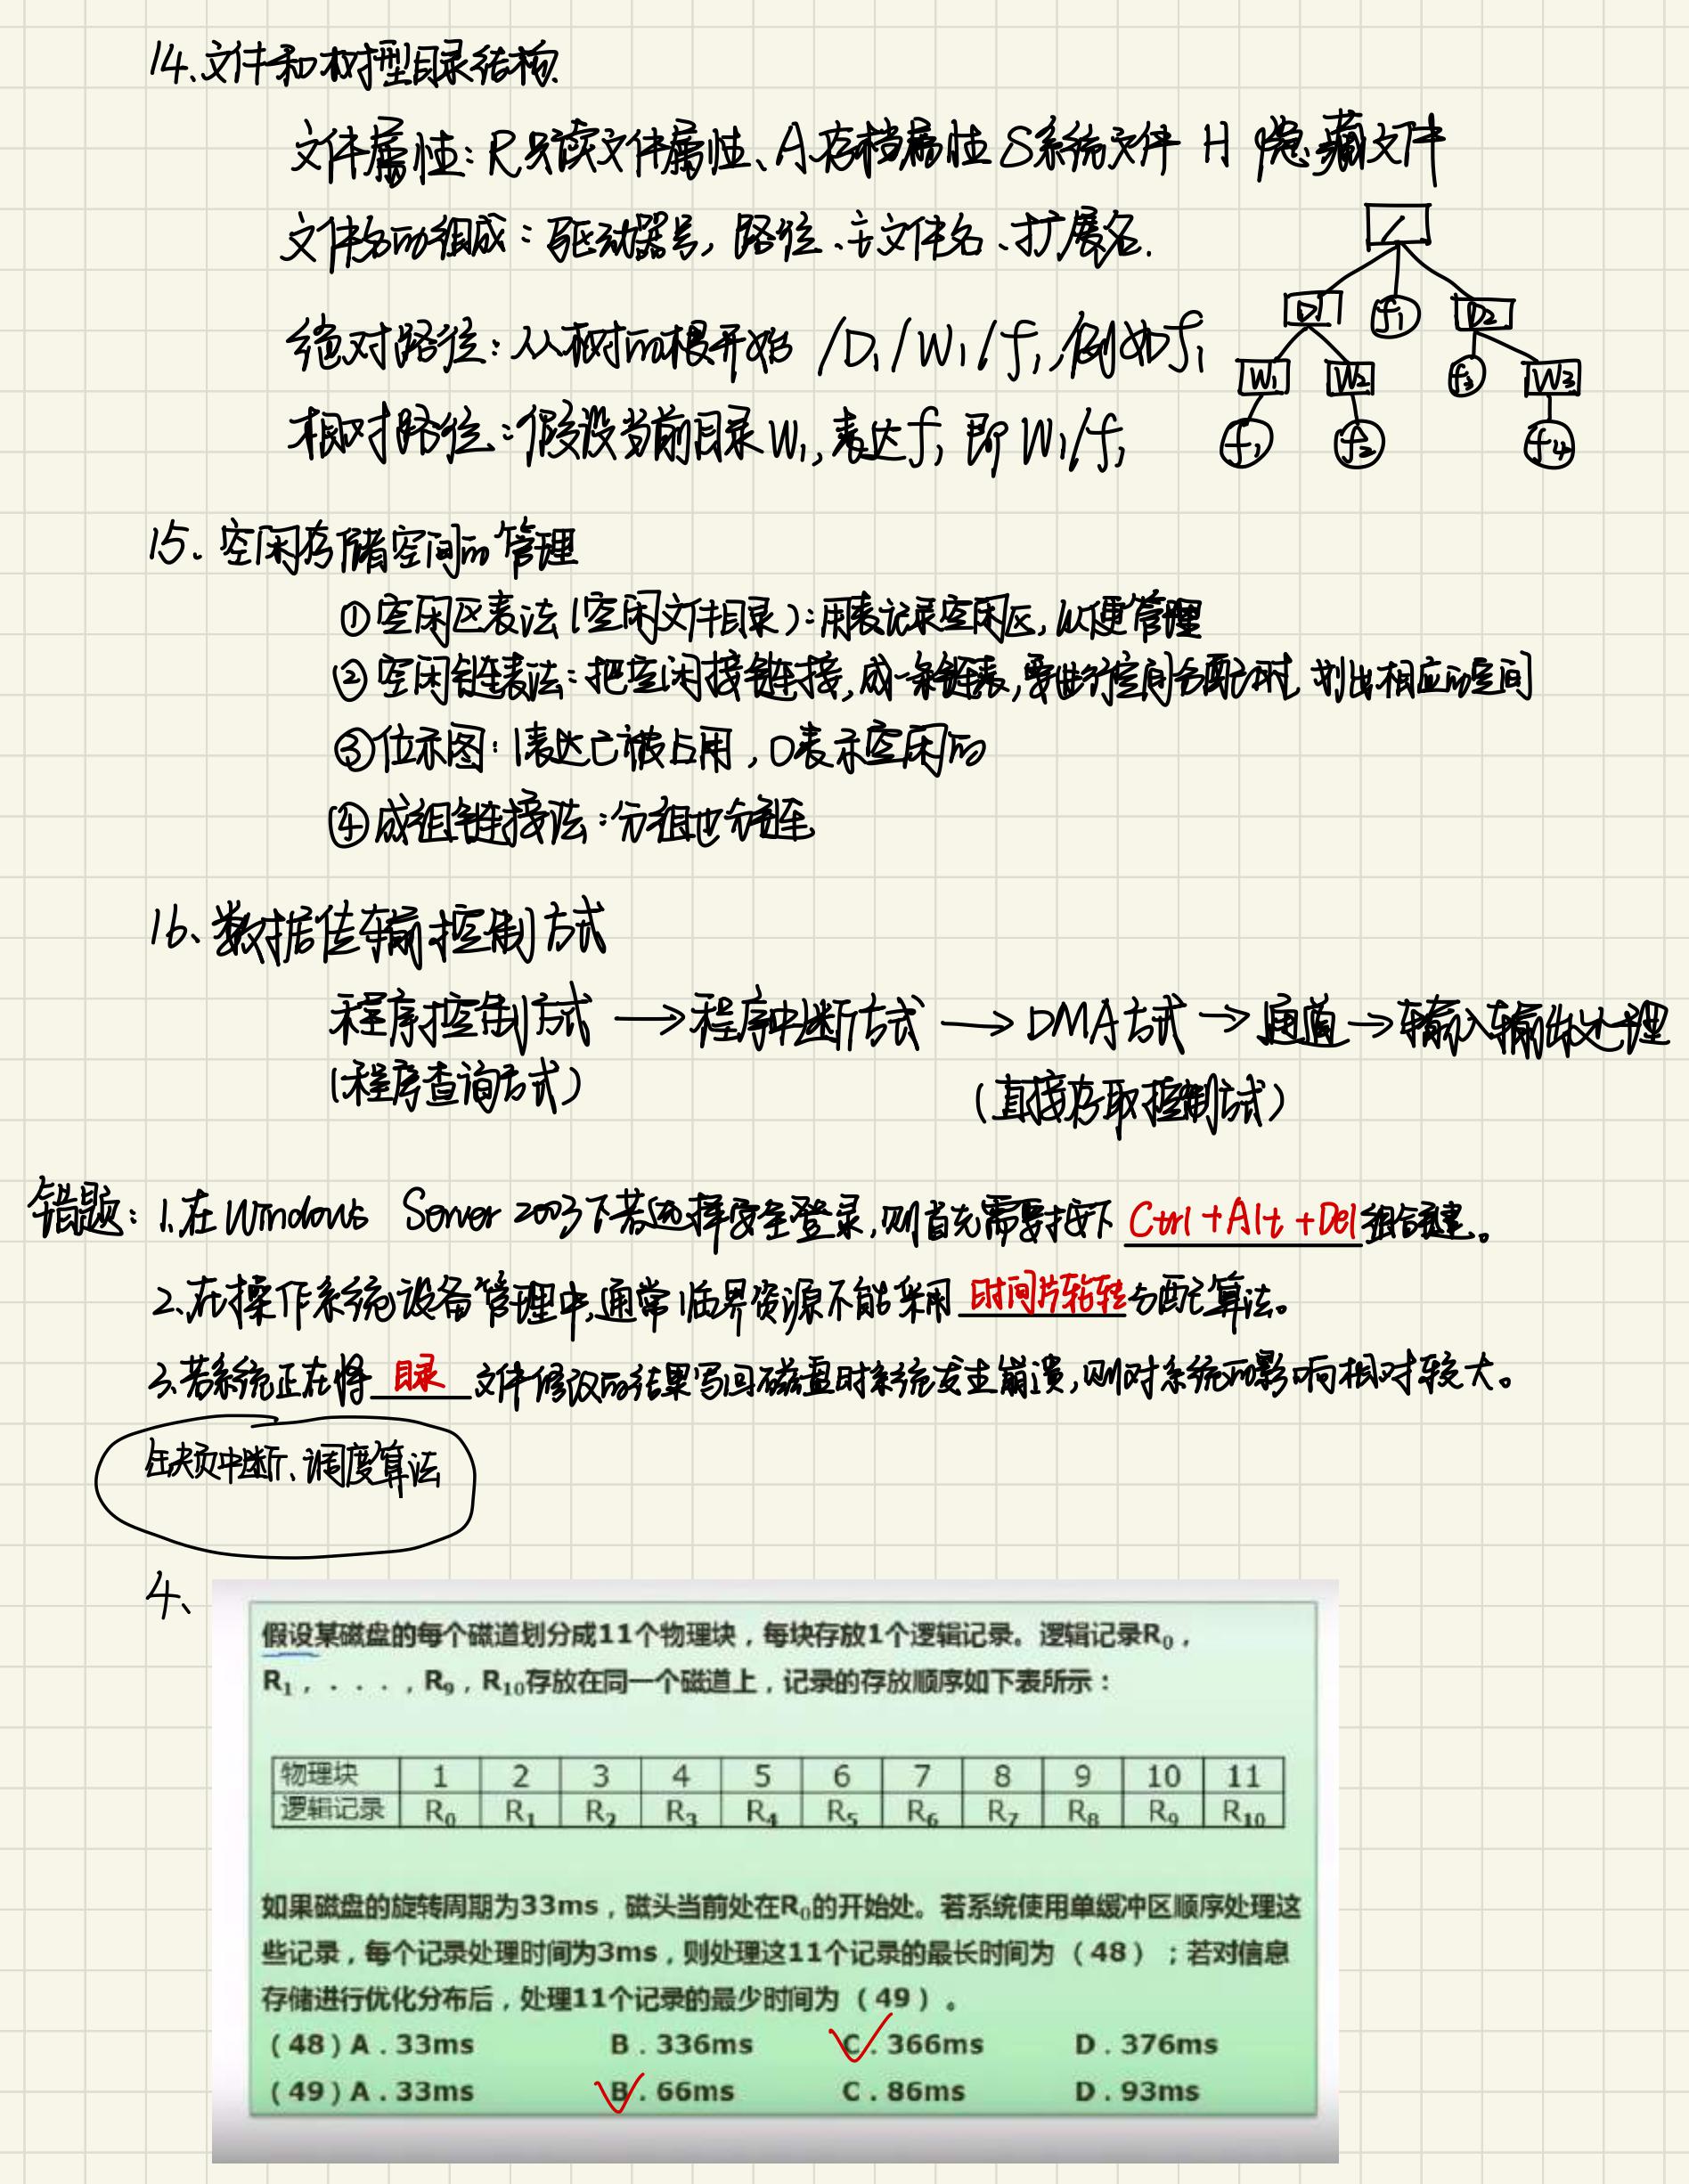 14.文件和树型目录结构.
文件属性:R只读文件属性、A存档属性 S系统文件 H 隐藏文件
文件名的组成:驱动器号,路径、主文件名、扩展名.
绝对路径:从树的根开始 /D₁/W₁/f₁,例如f₁
相对路径:假设当前目录W₁,表达f₁ 即 W₁/f₁
/
D₁ f₁ D₂
W₁ W₂ f₃ W₃
f₁ f₂ f₄
15. 空闲存储空间的管理
①空闲区表法(空闲文件目录):用表记录空闲区,以便管理
②空闲链表法:把空闲接链接,成一条链表,要进行空间分配时,划出相应的空间
③位示图:1表达已被占用,0表示空闲的
④成组链接法:分组也分链
16、数据传输控制方式
程序控制方式 → 程序中断方式 → DMA方式 → 通道 → 输入输出处理
(程序查询方式) (直接存取控制方式)
错题:1.在Windows Server 2003下若选择安全登录,则首先需要按下 Ctrl+Alt+Del 组合键。
2、在操作系统设备管理中,通常临界资源不能采用 时间片轮转 分配算法。
3.若系统正在将 目录 文件修改的结果写回磁盘时系统发生崩溃,则对系统的影响相对较大。
缺页中断、调度算法
4、
假设某磁盘的每个磁道划分成11个物理块,每块存放1个逻辑记录。逻辑记录R₀,
R₁,....,R₉,R₁₀存放在同一个磁道上,记录的存放顺序如下表所示:
物理块 1 2 3 4 5 6 7 8 9 10 11
逻辑记录 R₀ R₁ R₂ R₃ R₄ R₅ R₆ R₇ R₈ R₉ R₁₀
如果磁盘的旋转周期为33ms,磁头当前处在R₀的开始处。若系统使用单缓冲区顺序处理这
些记录,每个记录处理时间为3ms,则处理这11个记录的最长时间为(48);若对信息
存储进行优化分布后,处理11个记录的最少时间为(49)。
(48)A.33ms B.336ms C.366ms D.376ms
(49)A.33ms B.66ms C.86ms D.93ms